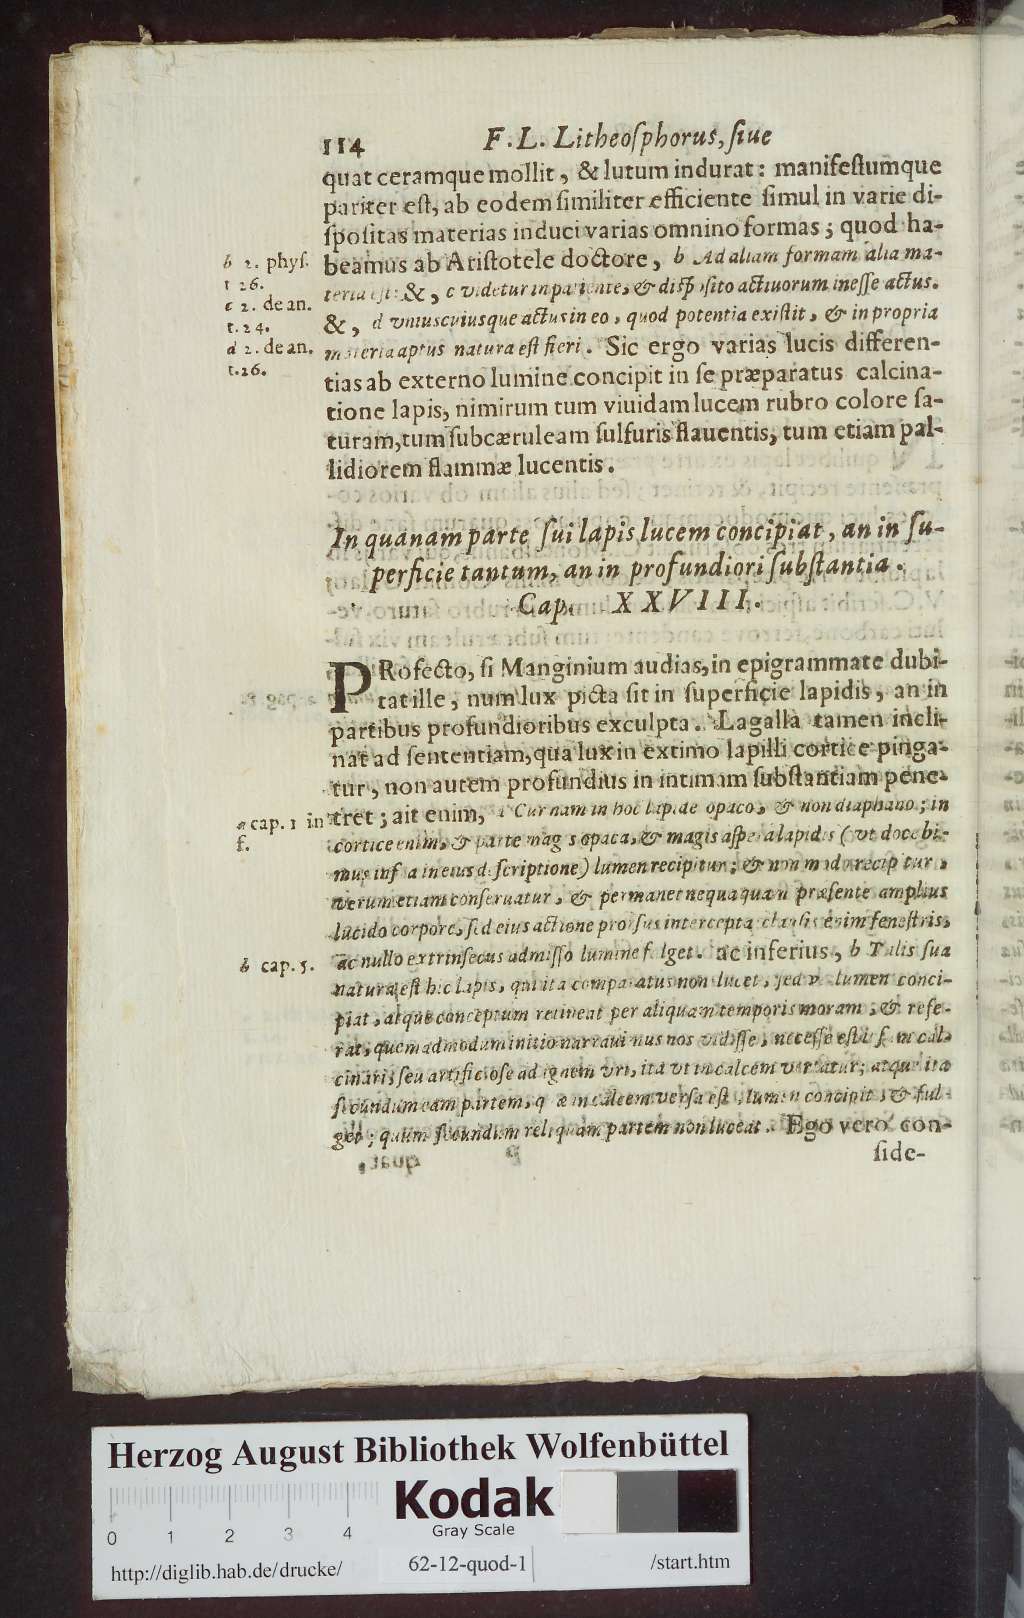 114 F. L. Litheoſphorus, ſiue
quat ceramque mollit, & lutum indurat: manifeſtumque
pariter eſt, ab eodem ſimiliter efficiente ſimul in varie di-
ſpoſitas materias induci varias omnino formas; quod ha-
b 2. phyſ. beamus ab Ariſtotele doctore, b Ad aliam formam alia ma-
t 26.
teria eſt: &, c videtur in patiente, & diſpoſito actiuorum ineſſe actus.
c 2. de an.
t. 24. &, d vniuscuiusque actus in eo, quod potentia exiſtit, & in propria
d 2. de an. materia aptus natura eſt fieri. Sic ergo varias lucis differen-
t. 26.
tias ab externo lumine concipit in ſe præparatus calcina-
tione lapis, nimirum tum viuidam lucem rubro colore ſa-
turam, tum ſubcæruleam ſulfuris flauentis, tum etiam pal-
lidiorem flammæ lucentis.
In quanam parte ſui lapis lucem concipiat, an in ſu-
perficie tantum, an in profundiori ſubſtantia.
Cap. XXVIII.
PRofecto, ſi Manginium audias, in epigrammate dubi-
tat ille, num lux picta ſit in ſuperficie lapidis, an in
partibus profundioribus exculpta. Lagalla tamen incli-
nat ad ſententiam, qua lux in extimo lapilli cortice pinga-
tur, non autem profundius in intimam ſubſtantiam pene-
a cap. 1 in tret; ait enim, Cur nam in hoc lapide opaco, & non diaphano; in
f.
cortice enim, & parte magis opaca, & magis aſpera lapidis (vt docebi-
mus infra in eius deſcriptione) lumen recipitur; & non modo recipitur,
verum etiam conſeruatur, & permanet nequaquam præſente amplius
lucido corpore, ſed eius actione prorſus intercepta clauſis enim feneſtris,
b cap. 5. ac nullo extrinſecus admiſſo lumine fulget. ac inferius, b Talis ſua
natura eſt hic lapis, qui ita comparatus non lucet, ſed vt lumen conci-
piat, atque conceptum retineat per aliquam temporis moram, & refe-
rat, quemadmodum initio narrauimus nos vidiſſe, neceſſe eſt ipſum cal-
cinari, ſeu artificioſe ad ignem vri, ita vt in calcem vertatur; atque ita
ſecundum eam partem, quæ in calcem verſa eſt, lumen concipit, & ful-
get; quum ſecundum reliquam partem non luceat. Ego vero con-
ſide-
Herzog August Bibliothek Wolfenbüttel
Kodak
Gray Scale
0 1 2 3 4
http://diglib.hab.de/drucke/ 62-12-quod-1 /start.htm